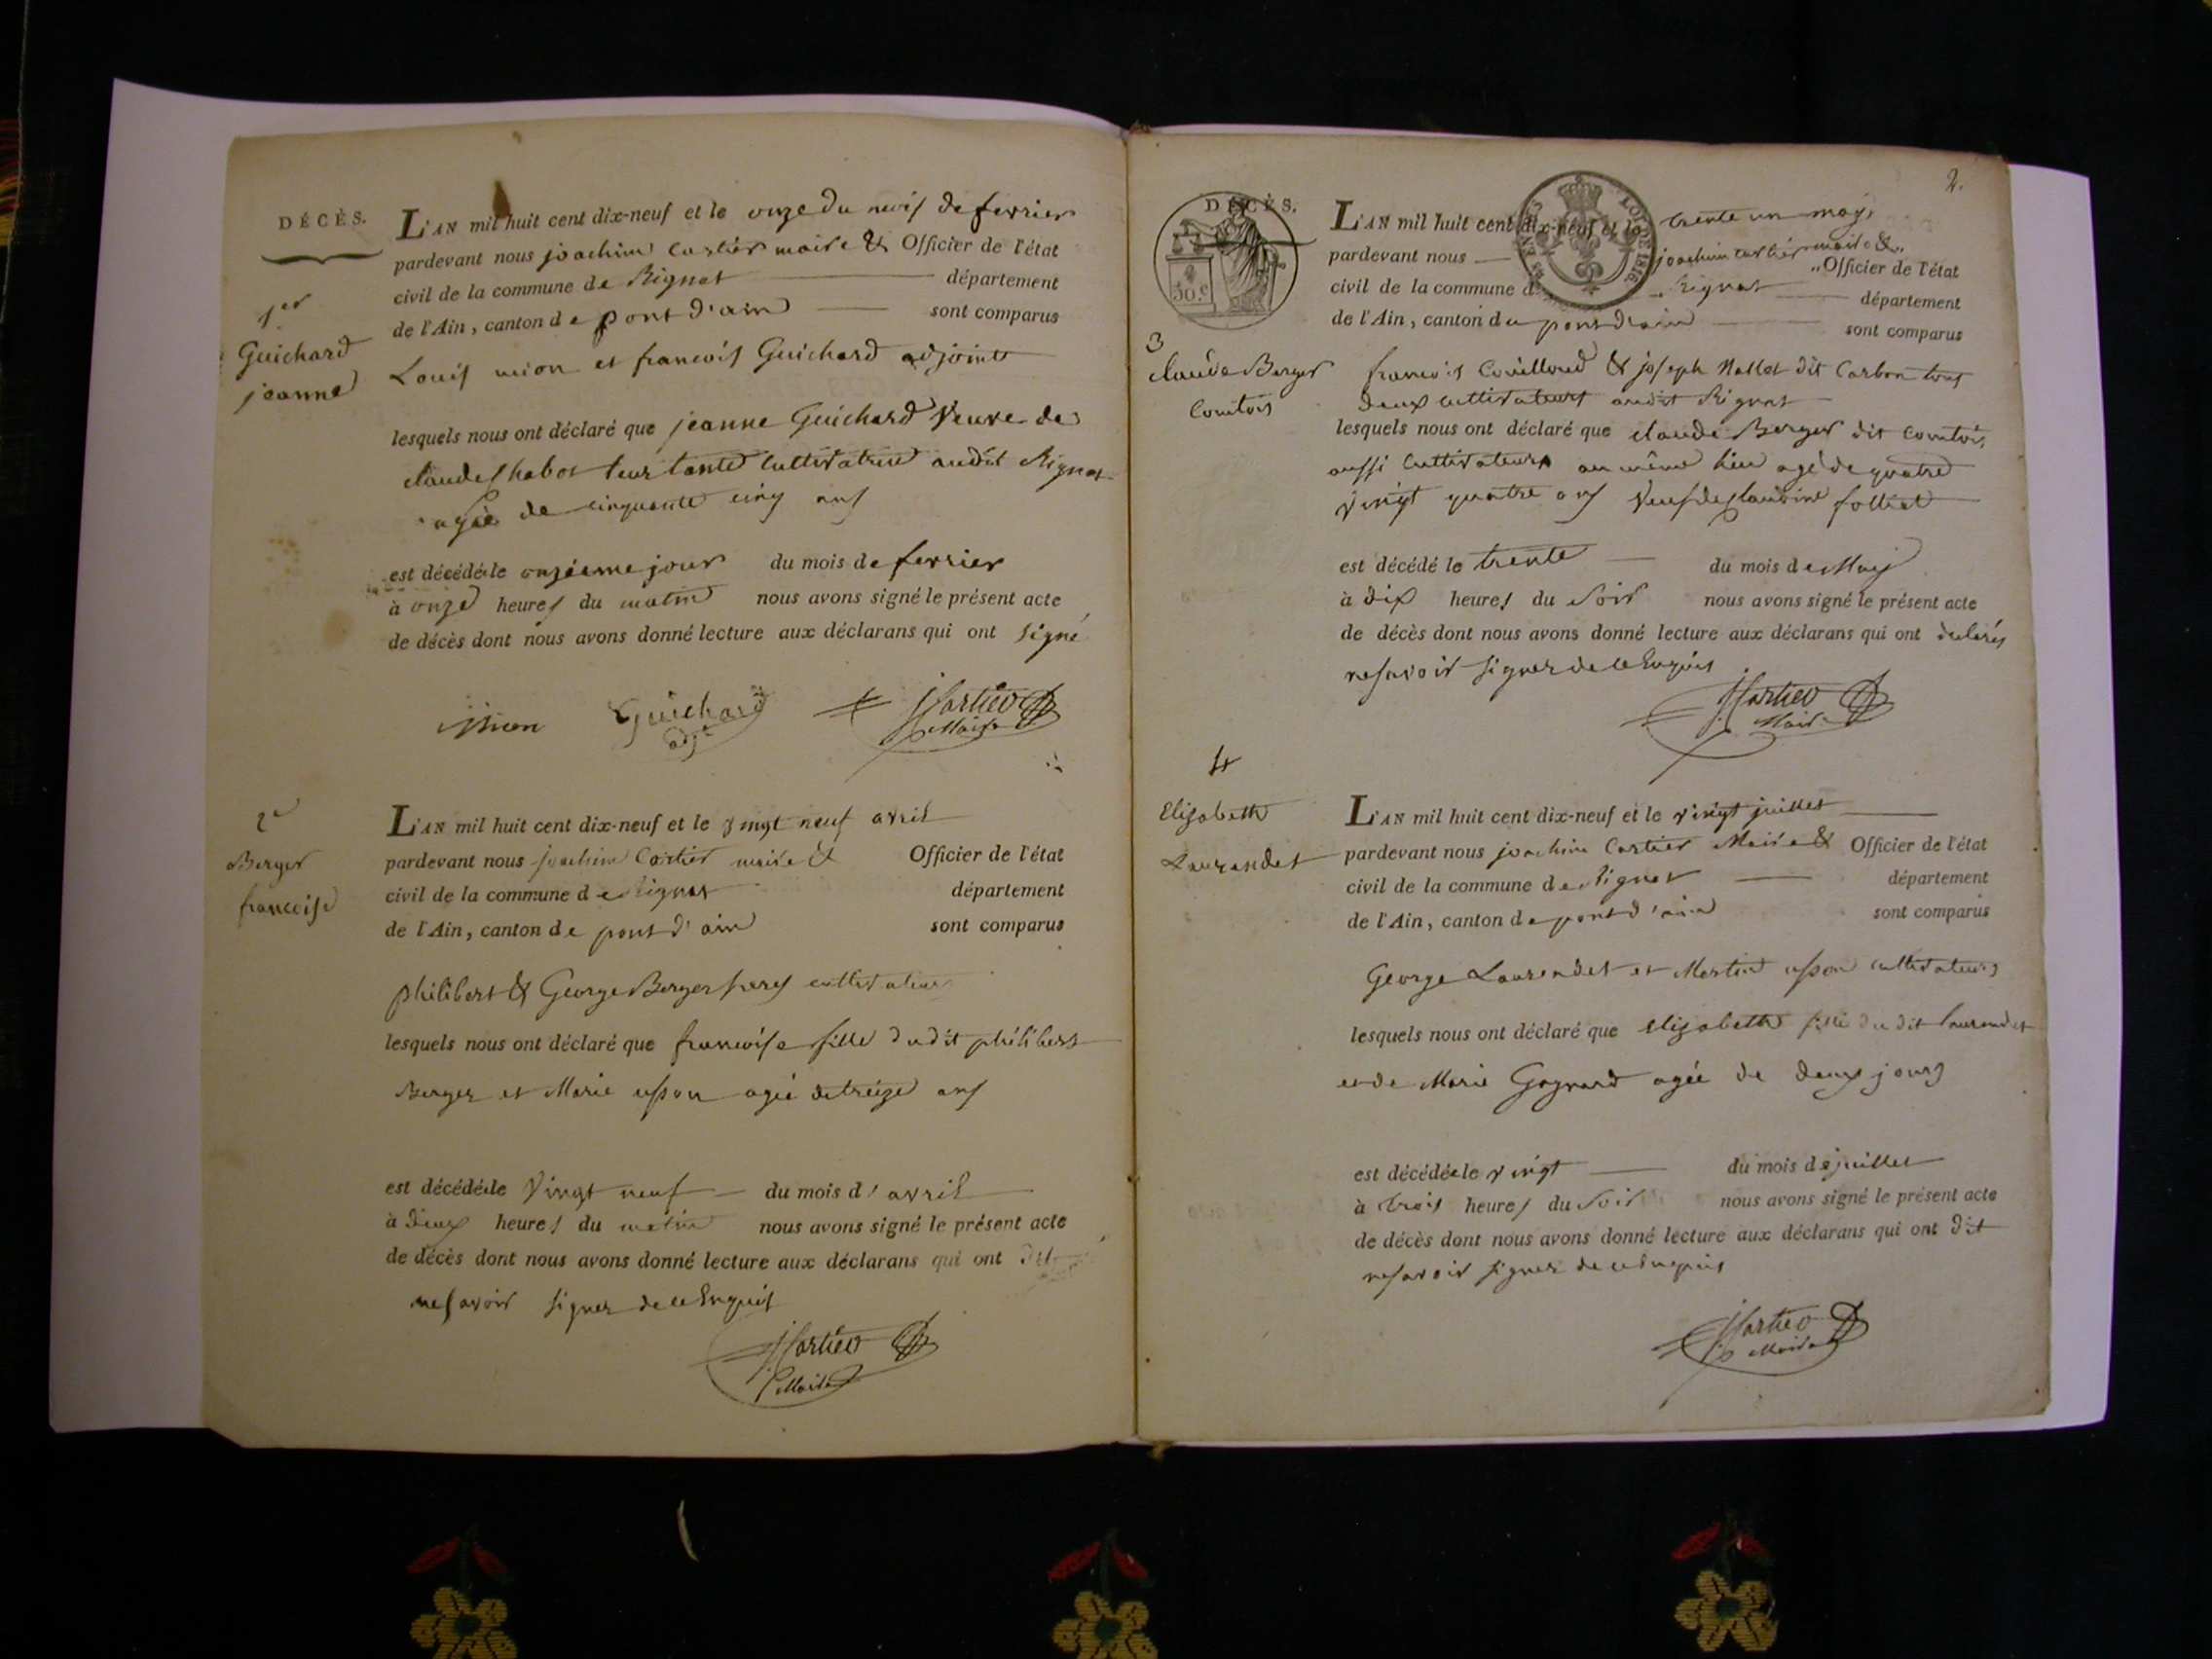 DÉCÈS.
1er
Guichard
jeanne
L'AN mil huit cent dix-neuf et le onze du mois de fevrier
pardevant nous joachim Cartier maire & Officier de l'état
civil de la commune de Rignat département
de l'Ain, canton de pont d'ain sont comparus
Louis mion et francois Guichard adjoint
lesquels nous ont déclaré que jeanne Guichard Veuve de
claude Chabot leur tante Cultivatrice audit Rignat
agée de cinquante cinq ans
est décédée le onzieme jour du mois de fevrier
à onze heures du matin nous avons signé le présent acte
de décès dont nous avons donné lecture aux déclarans qui ont signé
Guichard
adjt
JCartier
Maire
2e
Berger
francoise
L'AN mil huit cent dix-neuf et le vingt neuf avril
pardevant nous joachim Cartier maire & Officier de l'état
civil de la commune de Rignat département
de l'Ain, canton de pont d'ain sont comparus
philibert & George Berger freres cultivateurs
lesquels nous ont déclaré que francoise fille dudit philibert
Berger et Marie agée de treize ans
est décédée le Vingt neuf du mois d'avril
à deux heures du matin nous avons signé le présent acte
de décès dont nous avons donné lecture aux déclarans qui ont dit
ne savoir signer de ce Enquis
JCartier
Maire
2.
DÉCÈS.
50.c
LOI DE 1816
3
claude Berger
Comtois
L'AN mil huit cent dix-neuf et le trente un may
pardevant nous joachim Cartier maire & Officier de l'état
civil de la commune d Rignat département
de l'Ain, canton de pont d'ain sont comparus
francois Couilloud & joseph Nallet dit Carbon tous
deux cultivateurs audit Rignat
lesquels nous ont déclaré que claude Berger dit Comtois
aussi Cultivateur au même lieu agé de quatre
vingt quatre ans Veuf de Claudine folliet
est décédé le trente du mois de May
à dix heures du soir nous avons signé le présent acte
de décès dont nous avons donné lecture aux déclarans qui ont
ne savoir signer de ce Enquis
JCartier
Maire
4
Elizabeth
Laurandet
L'AN mil huit cent dix-neuf et le vingt juillet
pardevant nous joachim Cartier Maire & Officier de l'état
civil de la commune de Rignat département
de l'Ain, canton de pont d'ain sont comparus
George Laurendet et Martin cultivateurs
lesquels nous ont déclaré que Elizabeth fille du dit Laurendet
et de Marie Gagnard agée de deux jours
est décédée le vingt du mois de juillet
à trois heures du soir nous avons signé le présent acte
de décès dont nous avons donné lecture aux déclarans qui ont dit
ne savoir signer de ce Enquis
JCartier
Maire